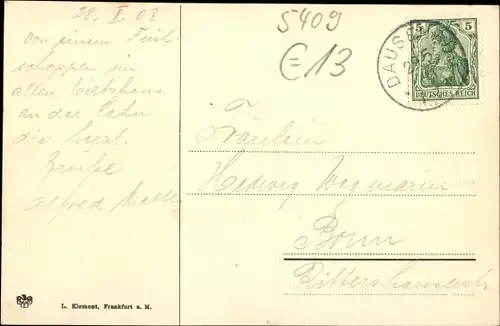 28. V. 08
von einem Früh-
schoppen im
alten Wirtshaus
an der Lahn
die herzl.
Grüße
Alfred
5409
€13
DAUSE
5 5
DEUTSCHES REICH
Fräulein
Hedwig Wegmann
Bonn
L. Klement, Frankfurt a. M.